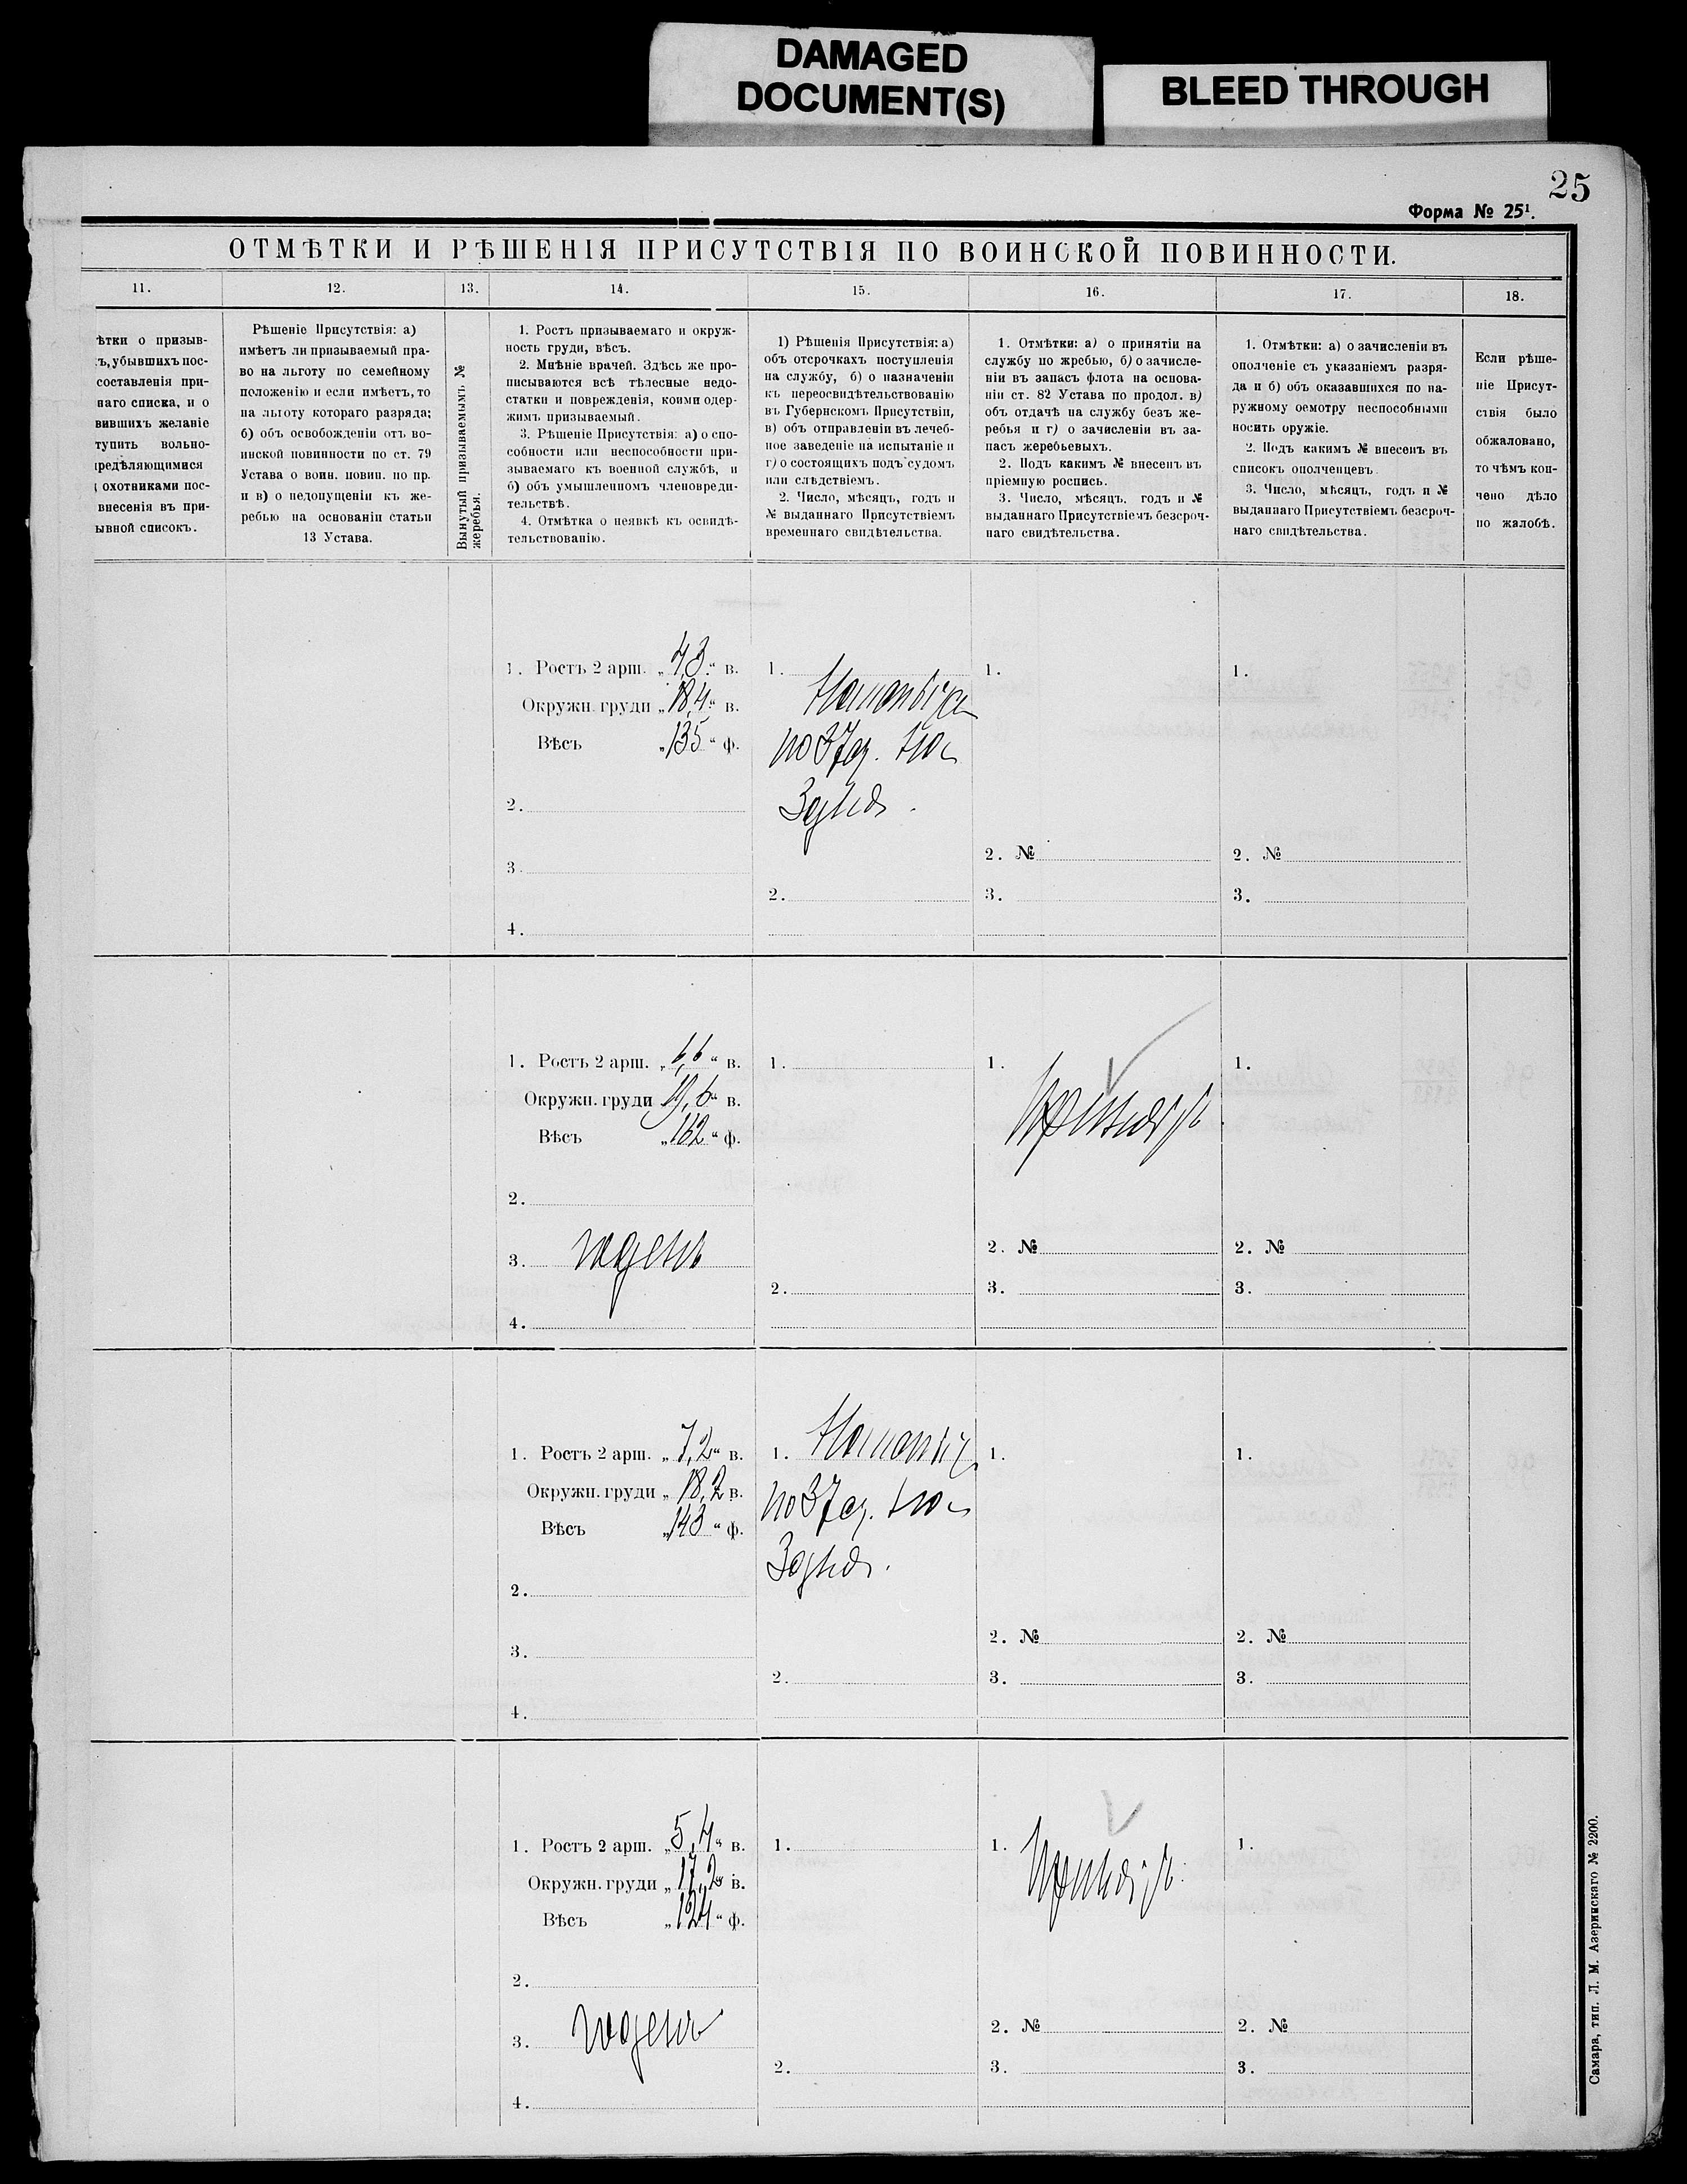 DAMAGED
DOCUMENT(S)
BLEED THROUGH
25
Форма № 25¹.
ОТМѢТКИ И РѢШЕНІЯ ПРИСУТСТВІЯ ПО ВОИНСКОЙ ПОВИННОСТИ.
11. 12. 13. 14. 15. 16. 17. 18.
ѣтки о призыв-
ъ, убывшихъ пос-
составленія при-
наго списка, и о
вившихъ желаніе
тупить вольно-
редѣляющимися
охотниками пос-
внесенія въ при-
ывной списокъ.
Рѣшеніе Присутствія: а)
имѣетъ ли призываемый пра-
во на льготу по семейному
положенію и если имѣетъ, то
на льготу котораго разряда;
б) объ освобожденіи отъ во-
инской повинности по ст. 79
Устава о воин. повин. по пр.
и в) о недопущеніи къ же-
ребью на основаніи статьи
13 Устава.
Вынутый призываемымъ №
жеребья.
1. Ростъ призываемаго и окруж-
ность груди, вѣсъ.
2. Мнѣніе врачей. Здѣсь же про-
писываются всѣ тѣлесные недо-
статки и поврежденія, коими одер-
жимъ призываемый.
3. Рѣшеніе Присутствія: а) о спо-
собности или неспособности при-
зываемаго къ военной службѣ, и
б) объ умышленномъ членовреди-
тельствѣ.
4. Отмѣтка о неявкѣ къ освидѣ-
тельствованію.
1) Рѣшенія Присутствія: а)
объ отсрочкахъ поступленія
на службу, б) о назначеніи
къ переосвидѣтельствованію
въ Губернскомъ Присутствіи,
в) объ отправленіи въ лечеб-
ное заведеніе на испытаніе и
г) о состоящихъ подъ судомъ
или слѣдствіемъ.
2. Число, мѣсяцъ, годъ и
№ выданнаго Присутствіемъ
временнаго свидѣтельства.
1. Отмѣтки: а) о принятіи на
службу по жребью, б) о зачисле-
ніи въ запасъ флота на основа-
ніи ст. 82 Устава по продол. в)
объ отдачѣ на службу безъ же-
ребья и г) о зачисленіи въ за-
пасъ жеребьевыхъ.
2. Подъ какимъ № внесенъ въ
пріемную роспись.
3. Число, мѣсяцъ, годъ и №
выданнаго Присутствіемъ безсроч-
наго свидѣтельства.
1. Отмѣтки: а) о зачисленіи въ
ополченіе съ указаніемъ разря-
да и б) объ оказавшихся по на-
ружному осмотру неспособными
носить оружіе.
2. Подъ какимъ № внесенъ въ
списокъ ополченцевъ
3. Число, мѣсяцъ, годъ и №
выданнаго Присутствіемъ безсроч-
наго свидѣтельства.
Если рѣше-
ніе Присут-
ствія было
обжаловано,
то чѣмъ кон-
чено дѣло
по жалобѣ.
1. Ростъ 2 арш. „4,3“ в. 1. 1. 1.
Окружн. груди „18,4“ в.
Вѣсъ „135“ ф.
2.
2. № 2. №
3.
2. 3. 3.
4.
1. Ростъ 2 арш. „6,6“ в. 1. 1. 1.
Окружн. груди „19,6“ в.
Вѣсъ „162“ ф.
2.
2. № 2. №
3. годенъ
2. 3. 3.
4.
1. Ростъ 2 арш. „7,2“ в. 1. 1. 1.
Окружн. груди „18,2 в.
Вѣсъ „143“ ф.
2.
2. № 2. №
3.
2. 3. 3.
4.
1. Ростъ 2 арш. „5,4“ в. 1. 1. 1.
Окружн. груди „17,2“ в.
Вѣсъ „124“ ф.
2.
2. № 2. №
3. годенъ
2. 3. 3.
4.
Самара, тип. Л. М. Азеринскаго № 2200.